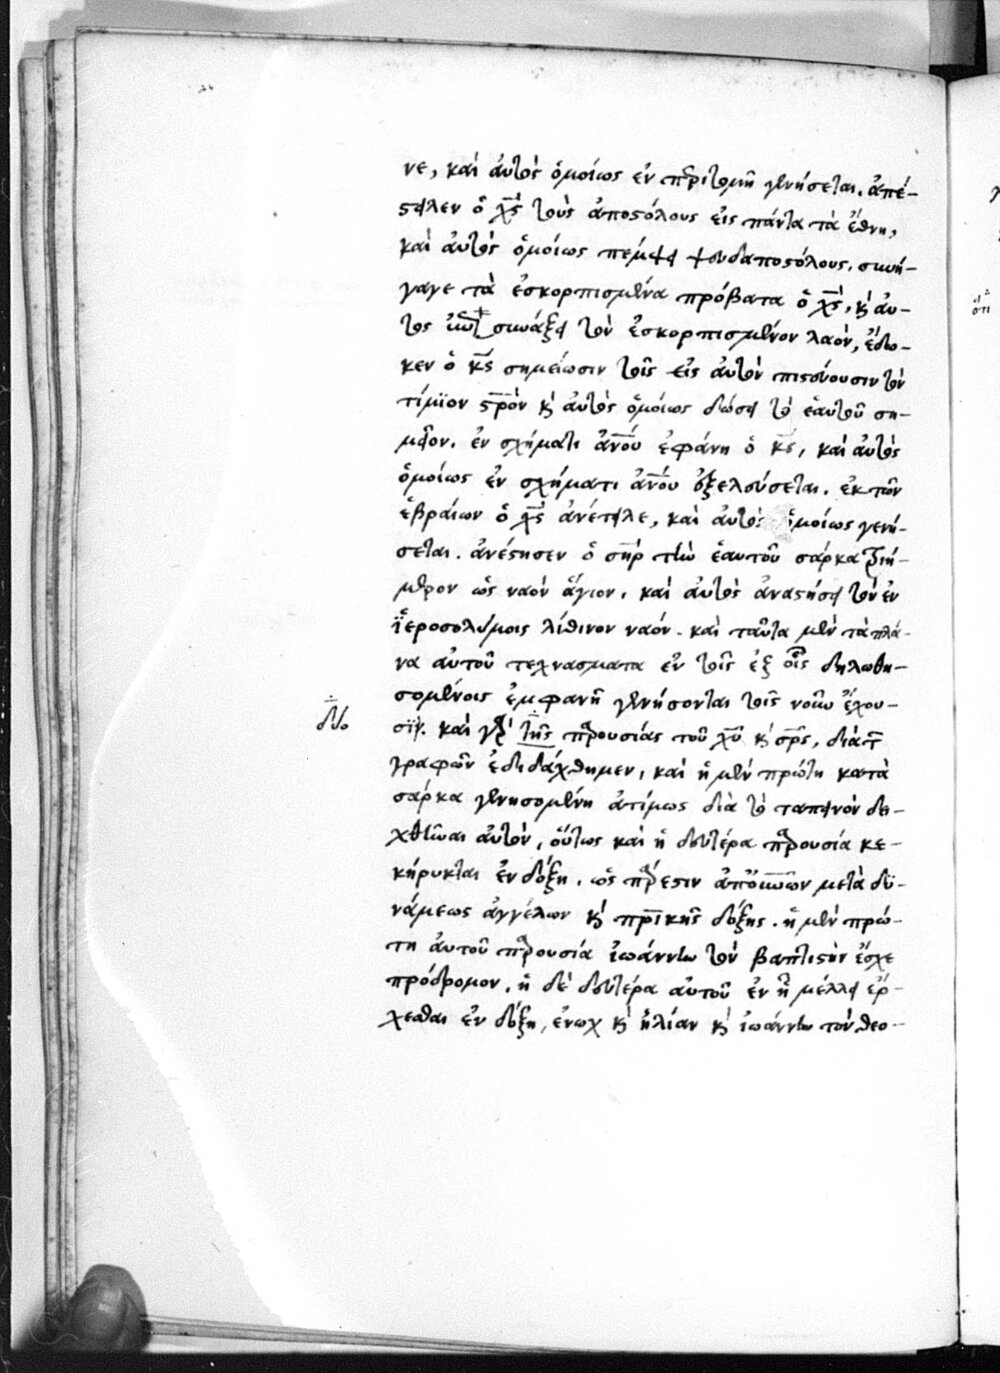 νε, καὶ αὐτὸς ὁμοίως ἐν περιτομῆ γεννήσεται. ἀπέ-
στειλεν ὁ χς τοὺς ἀποστόλους εἰς πάντα τὰ ἔθνη,
καὶ αὐτὸς ὁμοίως πέμψει ψευδαποστόλους. συνή-
γαγε τὰ ἐσκορπισμένα πρόβατα ὁ χς, κ αὐ-
τος συνάξει τὸν ἐσκορπισμένον λαὸν, ἔδω-
κεν ὁ κς σημείωσιν τοῖς εἰς αὐτὸν πιστεύουσιν τὸν
τίμϊον στρὸν κ αὐτὸς ὁμοίως δώσει τὸ ἑαυτοῦ ση-
μεῖον. ἐν σχήματι ἀνου ἐφάνη ὁ κς, καὶ αὐτὸς
ὁμοίως ἐν σχήματι ἀνου ἐξελεύσεται. ἐκ τῶν
ἑβραίων ὁ χς ἀνέτειλε, καὶ αὐτὸς ὁμοίως γενή-
σεται. ἀνέστησεν ὁ σηρ τὴν ἑαυτοῦ σάρκα τριή-
μερον ὡς ναὸν ἅγιον. καὶ αὐτὸς ἀναστήσει τὸν ἐν
ἱεροσολύμοις λίθινον ναόν. καὶ ταῦτα μὲν τὰ πλά-
να αὐτοῦ τεχνασματα ἐν τοῖς ἑξ οἷς δηλωθη-
σομένοις ἐμφανῆ γεννήσονται τοῖς νοῦν ἔχου-
δύο
σϊν. καὶ γὰρ τῆς παρουσίας τοῦ χυ κ σρς, διὰ τ
γραφῶν ἐδιδάχθημεν, καὶ ἡ μὲν πρώτη κατὰ
σάρκα γεννησομένη ἀτίμως διὰ τὸ ταπεινὸν δει-
χθῆναι αὐτὸν, οὕτως καὶ ἡ δευτέρα παρουσία κε-
κήρυκται ἐν δόξη. ὡς πάρεσιν ἀπ οὐνῶν μετὰ δυ-
νάμεως ἀγγέλων κ πρικῆς δόξης. ἡ μὲν πρώ-
τη αὐτοῦ παρουσία ἰωάννην τὸν βαπτιστὴν ἔσχε
πρόδρομον, ἡ δὲ δευτέρα αὐτοῦ ἐν ἧ μέλλει ἔρ-
χεσθαι ἐν δόξη, ἐνωχ κ ἠλίαν κ ἰωάννην τὸν θεο-